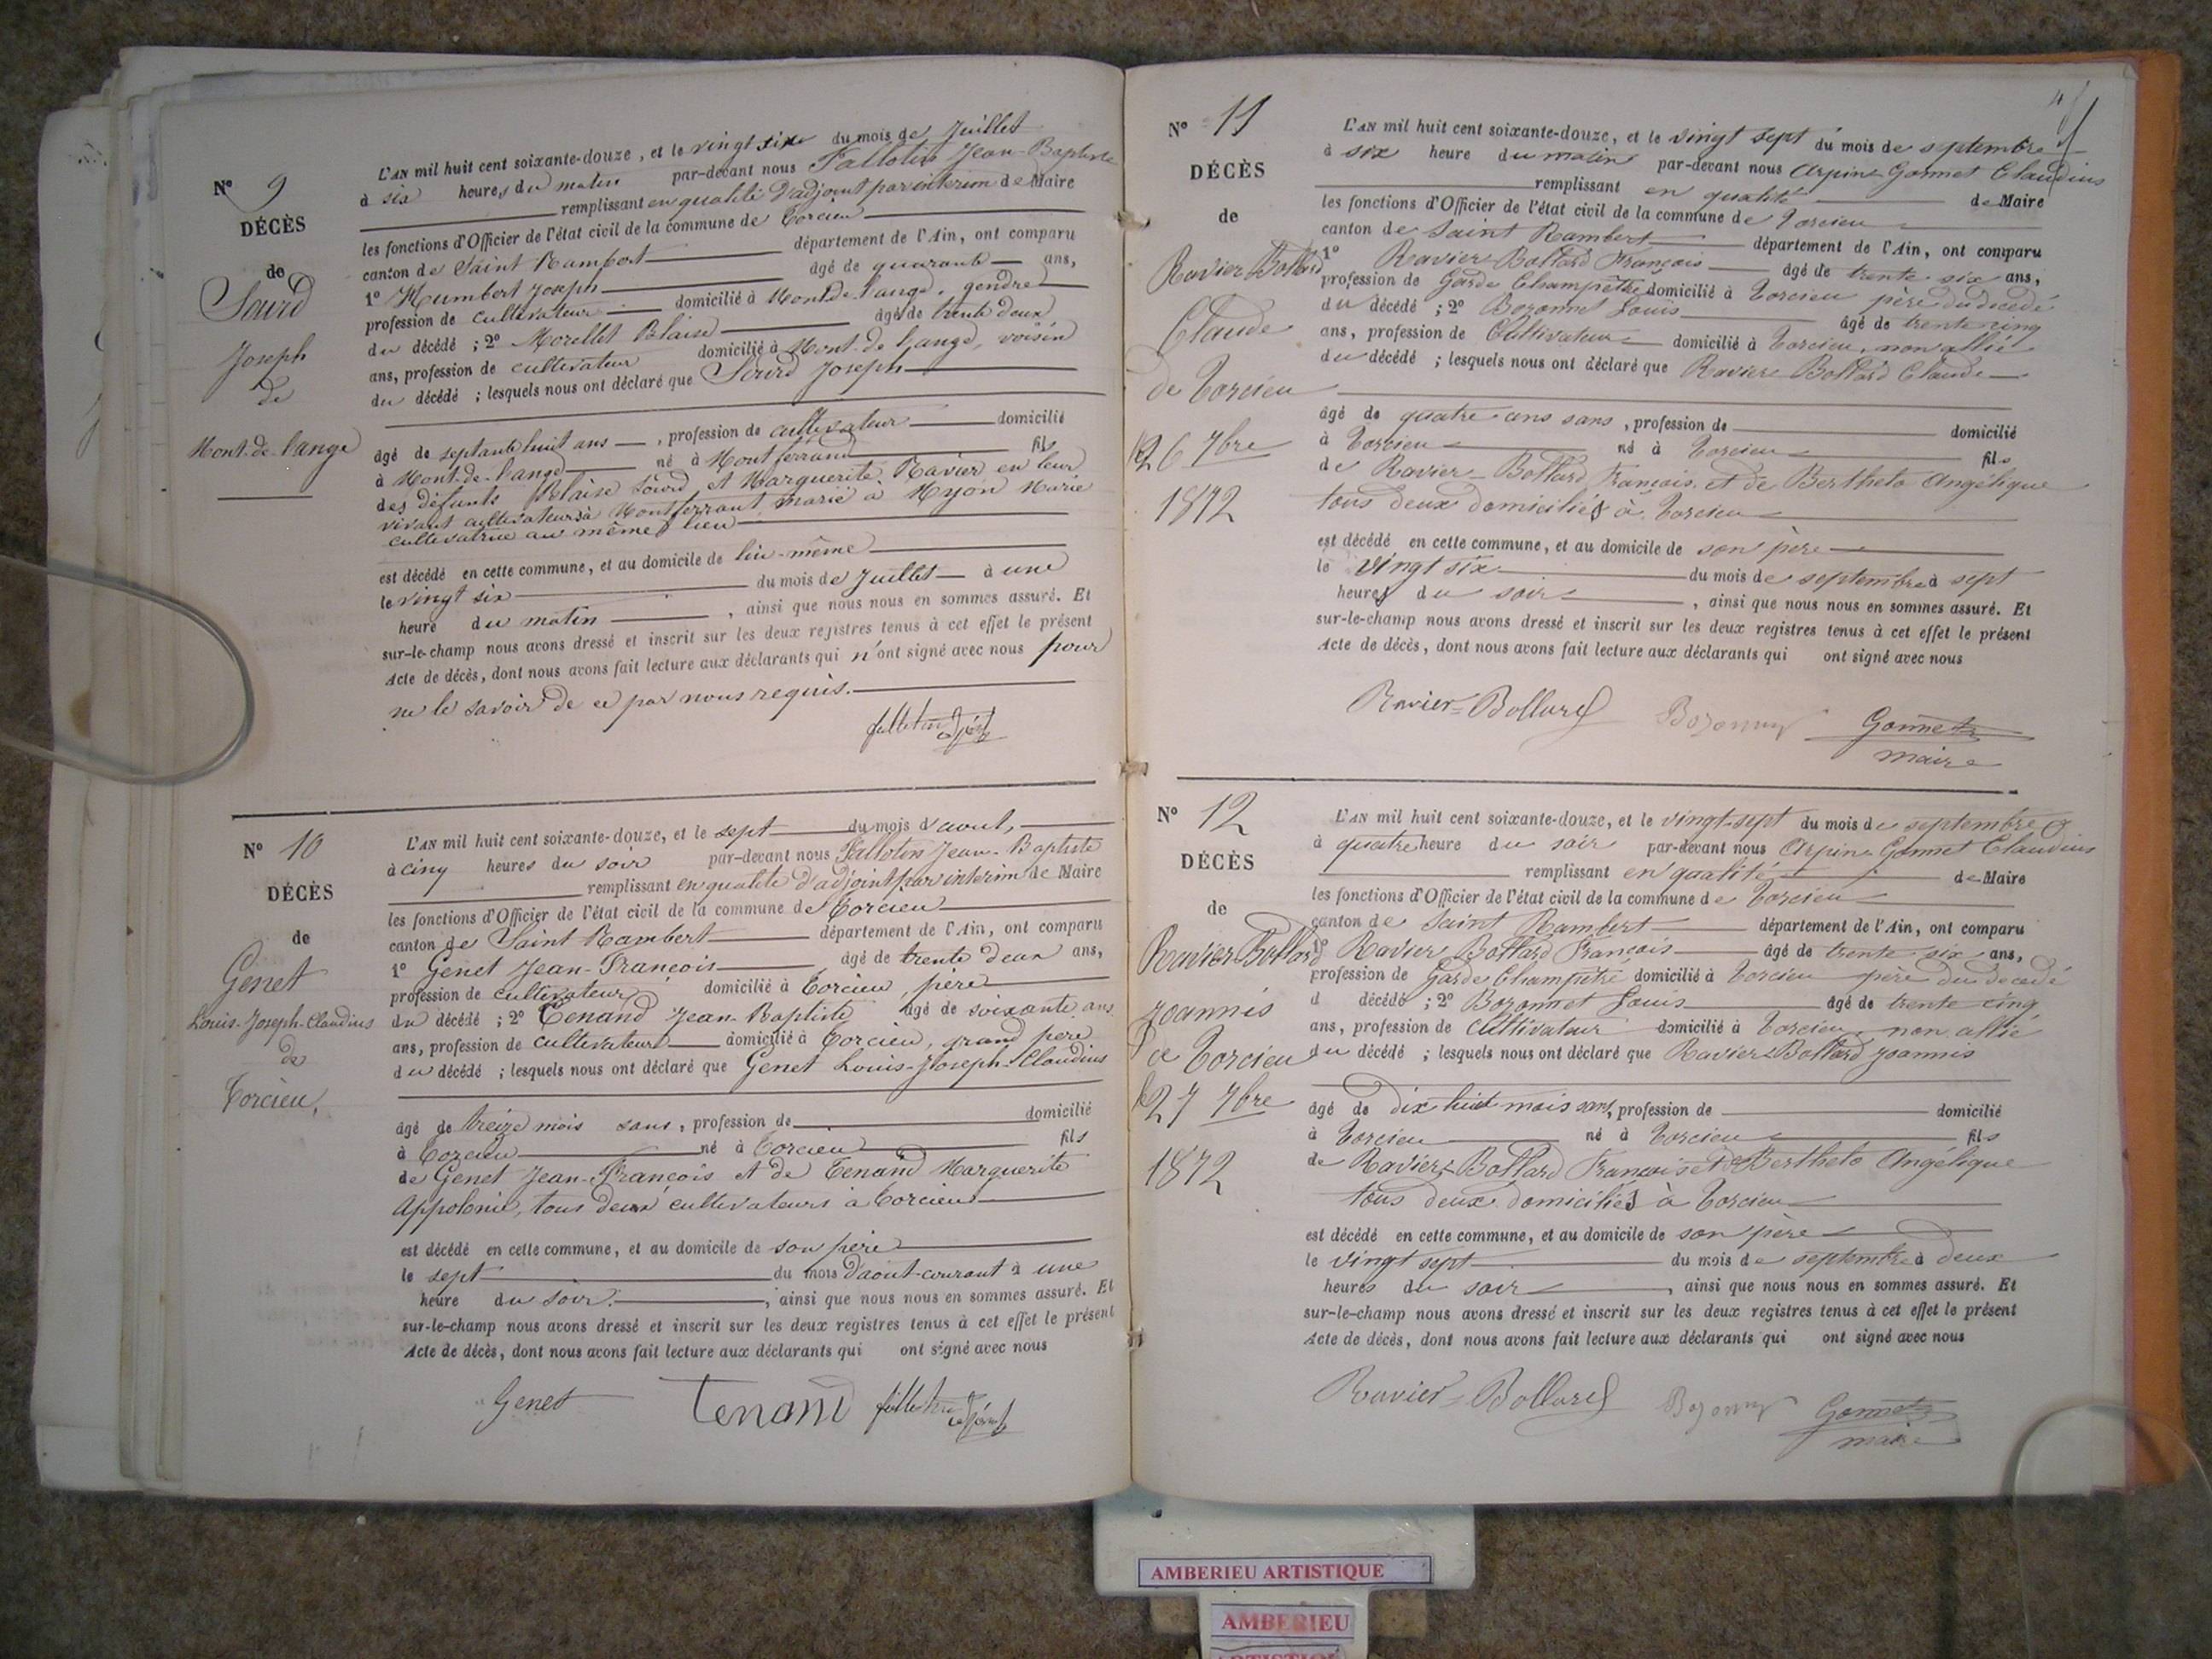 N° 9
DÉCÈS
de
Sourd
Joseph
de
Mont-de-lange
L'AN mil huit cent soixante-douze, et le vingt six du mois de Juillet
à six heures du matin par-devant nous Falloten Jean-Baptiste
remplissant en qualité d'adjoint par interim de Maire
les fonctions d'Officier de l'état civil de la commune de Torcieu
canton de Saint Rambert département de l'Ain, ont comparu
1° Humbert Joseph âgé de quarante ans,
profession de cultivateur domicilié à Mont-de-lange, gendre
du décédé ; 2° Morellet Blaise âgé de trente deux
ans, profession de cultivateur domicilié à Mont-de-lange, voisin
du décédé ; lesquels nous ont déclaré que Sourd Joseph
âgé de septante huit ans, profession de cultivateur domicilié
à Mont-de-lange né à Montferrand fils
des défunts Blaise Sourd et Marguerite Ravier en leur
vivant cultivateurs à Montferrant, marié à Myon Marie
cultivatrice au même lieu
est décédé en cette commune, et au domicile de lui-même
le vingt six du mois de Juillet à une
heure du matin, ainsi que nous nous en sommes assuré. Et
sur-le-champ nous avons dressé et inscrit sur les deux registres tenus à cet effet le présent
Acte de décès, dont nous avons fait lecture aux déclarants qui n'ont signé avec nous pour
ne le savoir de ce par nous requis.
N° 10
DÉCÈS
de
Genet
Louis-Joseph-Claudius
de
Torcieu,
L'AN mil huit cent soixante-douze, et le sept du mois d'aout,
à cinq heures du soir par-devant nous Falloten Jean-Baptiste
remplissant en qualité d'adjoint par interim de Maire
les fonctions d'Officier de l'état civil de la commune de Torcieu
canton de Saint Rambert département de l'Ain, ont comparu
1° Genet Jean-François âgé de trente deux ans,
profession de cultivateur domicilié à Torcieu, père
du décédé ; 2° Tenand Jean-Baptiste âgé de soixante ans
ans, profession de cultivateur domicilié à Torcieu, grand père
du décédé ; lesquels nous ont déclaré que Genet Louis-Joseph-Claudius
âgé de treize mois sans, profession de domicilié
à Torcieu né à Torcieu fils
de Genet Jean-François et de Tenand Marguerite
Appolonie, tous deux cultivateurs à Torcieu
est décédé en cette commune, et au domicile de son père
le sept du mois d'aout-courant à une
heure du soir, ainsi que nous nous en sommes assuré. Et
sur-le-champ nous avons dressé et inscrit sur les deux registres tenus à cet effet le présent
Acte de décès, dont nous avons fait lecture aux déclarants qui ont signé avec nous
Genet Tenand
N° 11
DÉCÈS
de
Ravier Bollard
Claude
de Torcieu
le 26 7bre
1872
L'AN mil huit cent soixante-douze, et le vingt sept du mois de septembre
à six heure du matin par-devant nous Arpin-Gonnet Claudius
remplissant en qualité de Maire
les fonctions d'Officier de l'état civil de la commune de Torcieu
canton de Saint Rambert département de l'Ain, ont comparu
1° Ravier Bollard François âgé de trente six ans,
profession de Garde Champêtre domicilié à Torcieu père du décédé
du décédé ; 2° Bozonnet Louis âgé de trente cinq
ans, profession de Cultivateur domicilié à Torcieu, non allié
du décédé ; lesquels nous ont déclaré que Ravier Bollard Claude
âgé de quatre ans sans, profession de domicilié
à Torcieu né à Torcieu fils
de Ravier-Bollard François et de Bertheto Angélique
tous deux domiciliés à Torcieu
est décédé en cette commune, et au domicile de son père
le vingt six du mois de septembre à sept
heures du soir, ainsi que nous nous en sommes assuré. Et
sur-le-champ nous avons dressé et inscrit sur les deux registres tenus à cet effet le présent
Acte de décès, dont nous avons fait lecture aux déclarants qui ont signé avec nous
Ravier=Bollard Gonnet
maire
N° 12
DÉCÈS
de
Ravier Bollard
Joannis
de Torcieu
le 27 7bre
1872
L'AN mil huit cent soixante-douze, et le vingt-sept du mois de septembre
à quatre heure du soir par-devant nous Arpin-Gonnet Claudius
remplissant en qualité de Maire
les fonctions d'Officier de l'état civil de la commune de Torcieu
canton de Saint Rambert département de l'Ain, ont comparu
1° Ravier Bollard François âgé de trente six ans,
profession de Garde Champêtre domicilié à Torcieu père du décédé
d décédé ; 2° Bozonnet Louis âgé de trente-cinq
ans, profession de Cultivateur domicilié à Torcieu, non allié
du décédé ; lesquels nous ont déclaré que Ravier Bollard Joannis
âgé de dix huit mois sans, profession de domicilié
à Torcieu né à Torcieu fils
de Ravier-Bollard François et de Bertheto Angélique
tous deux domiciliés à Torcieu
est décédé en cette commune, et au domicile de son père
le vingt sept du mois de septembre à deux
heures du soir, ainsi que nous nous en sommes assuré. Et
sur-le-champ nous avons dressé et inscrit sur les deux registres tenus à cet effet le présent
Acte de décès, dont nous avons fait lecture aux déclarants qui ont signé avec nous
Ravier=Bollard Gonnet
maire
AMBERIEU ARTISTIQUE
AMBERIEU
ARTISTIQUE